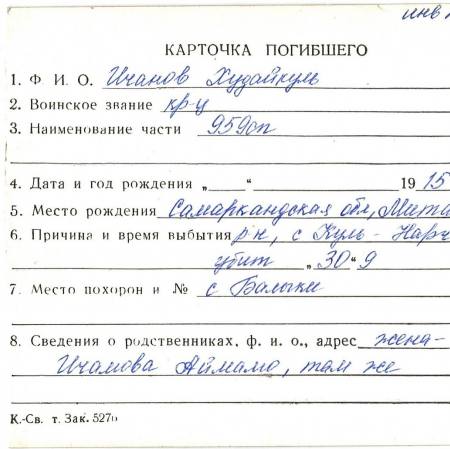 инв
КАРТОЧКА ПОГИБШЕГО
1. Ф. И. О. Ичанов Худайкуль
2. Воинское звание кр-ц
3. Наименование части 959сп
4. Дата и год рождения „ “ 1915
5. Место рождения Самаркандская обл, Мита
6. Причина и время выбытия р-н, с Куль-Нарч
убит „30“ 9
7. Место похорон и № с Балыки
8. Сведения о родственниках, ф. и. о., адрес жена-
Ичамова Аймамо, там же
К.-Св. т. Зак. 527